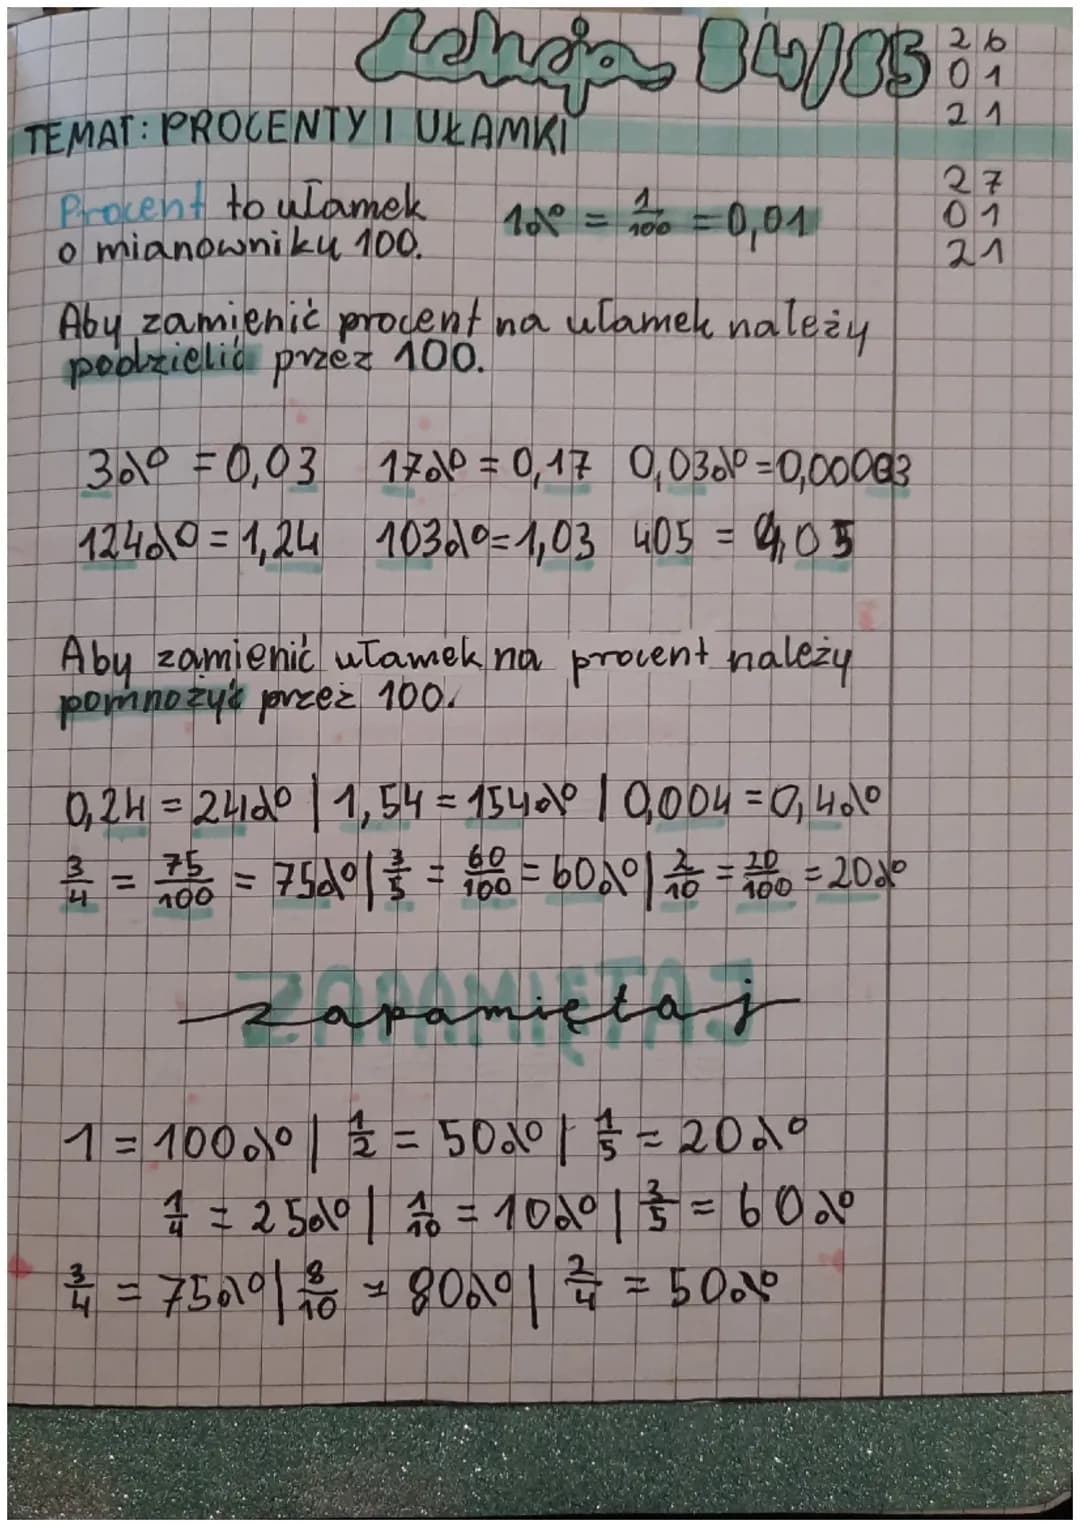 Lekcja 84/85
26
01
21
TEMAT: PROCENTY I UŁAMKI
27
01
21
Procent to ułamek
o mianowniku 100.
1% = 1/100 = 0,01
Aby zamienić procent na ułamek należy
podzielić przez 100.
3% = 0,03 17% = 0,17 0,03% = 0,00003
124% = 1,24 103% = 1,03 405 = 4,05
Aby zamienić ułamek na procent należy
pomnożyć przez 100.
0,24 = 24% | 1,54 = 154% | 0,004 = 0,4%
3/4 = 75/100 = 75% | 3/5 = 60/100 = 60% | 2/10 = 20/100 = 20%
ZAPAMIĘTAJ
zapamiętaj
1 = 100% | 1/2 = 50% | 1/5 = 20%
1/4 = 25% | 1/10 = 10% | 3/5 = 60%
3/4 = 75% | 8/10 = 80% | 2/4 = 50%